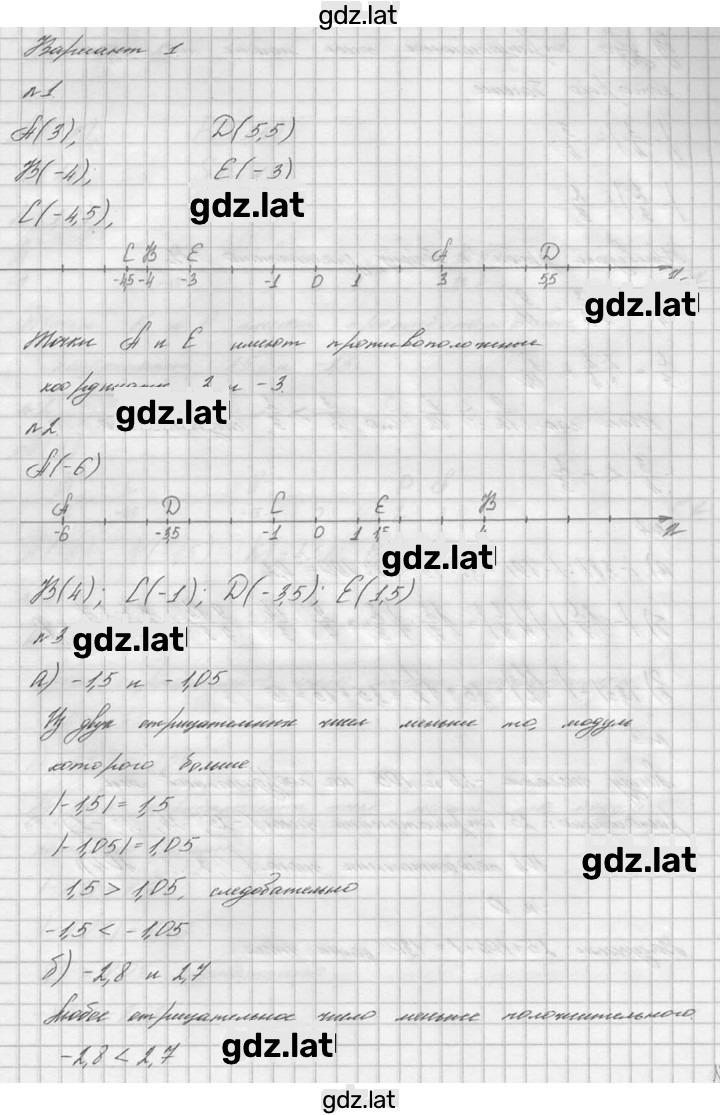 gdz.lat
Вариант 1
№1
A(3); D(5,5)
B(-4); E(-3)
gdz.lat
C(-4,5),
C B E A D
-4,5 -4 -3 -1 0 1 3 5,5
gdz.lat
Точки A и E имеют противоположные
координаты и -3.
gdz.lat
№2
A(-6)
A D C E B
-6 -3,5 -1 0 1
gdz.lat
B(4); C(-1); D(-3,5); E(1,5)
№3
gdz.lat
а) -1,5 и -1,05
Из двух отрицательных чисел меньше то, модуль
которого больше
|-1,5| = 1,5
|-1,05| = 1,05
gdz.lat
1,5 > 1,05, следовательно
-1,5 < -1,05
б) -2,8 и 2,7
Любое отрицательное число меньше положительного.
gdz.lat
-2,8 < 2,7
gdz.lat